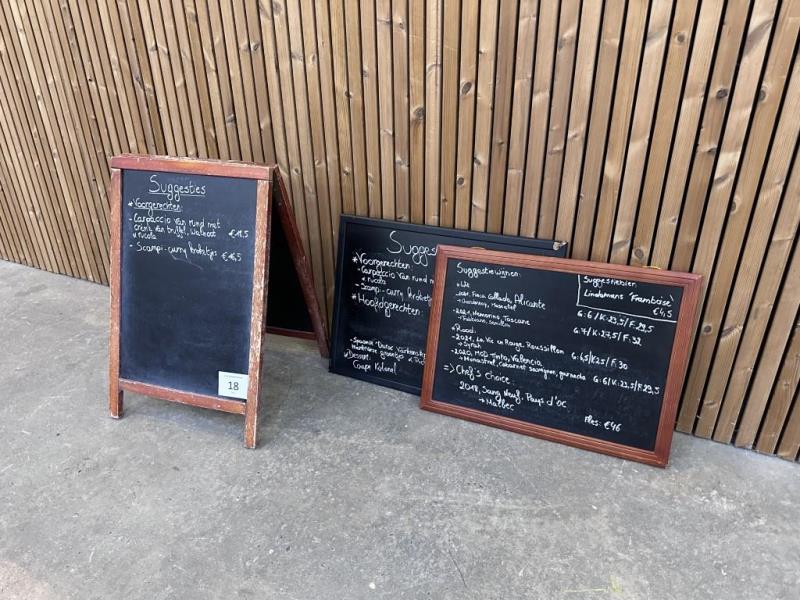 Suggesties
* Voorgerechten:
- Carpaccio van rund met
crème van truffel, walnoot
& rucola €19,5
- Scampi-curry kroketjes €16,5
18
Sugges
* Voorgerechten:
- Carpaccio van rund m
& rucola
- Scampi-curry
* Hoofdgerechten:
Dessert:
Coupe
Suggestiewijnen:
* Wit
Finca Collado, Alicante
→ Chardonnay, Moscatel
G: 6 / K: 23,5 / F: 29,5
- 2021, Memorino, Toscane
G: 7 / K: 27,5 / F: 32
* Rood:
- 2021, La Vie en Rouge, Roussillon
→ Syrah
G: 6,5 / K: 25 / F: 30
- 2020, MCD Tinto, Valencia
→ Monastrell, cabernet sauvignon, garnacha
G: 6 / K: 23,5 / F: 29,5
=> Chef's choice:
2018, Sang Neuf, Pays d'oc
→ Malbec
Fles: €46
Suggestiebier:
Lindemans 'Framboise'
€4,5